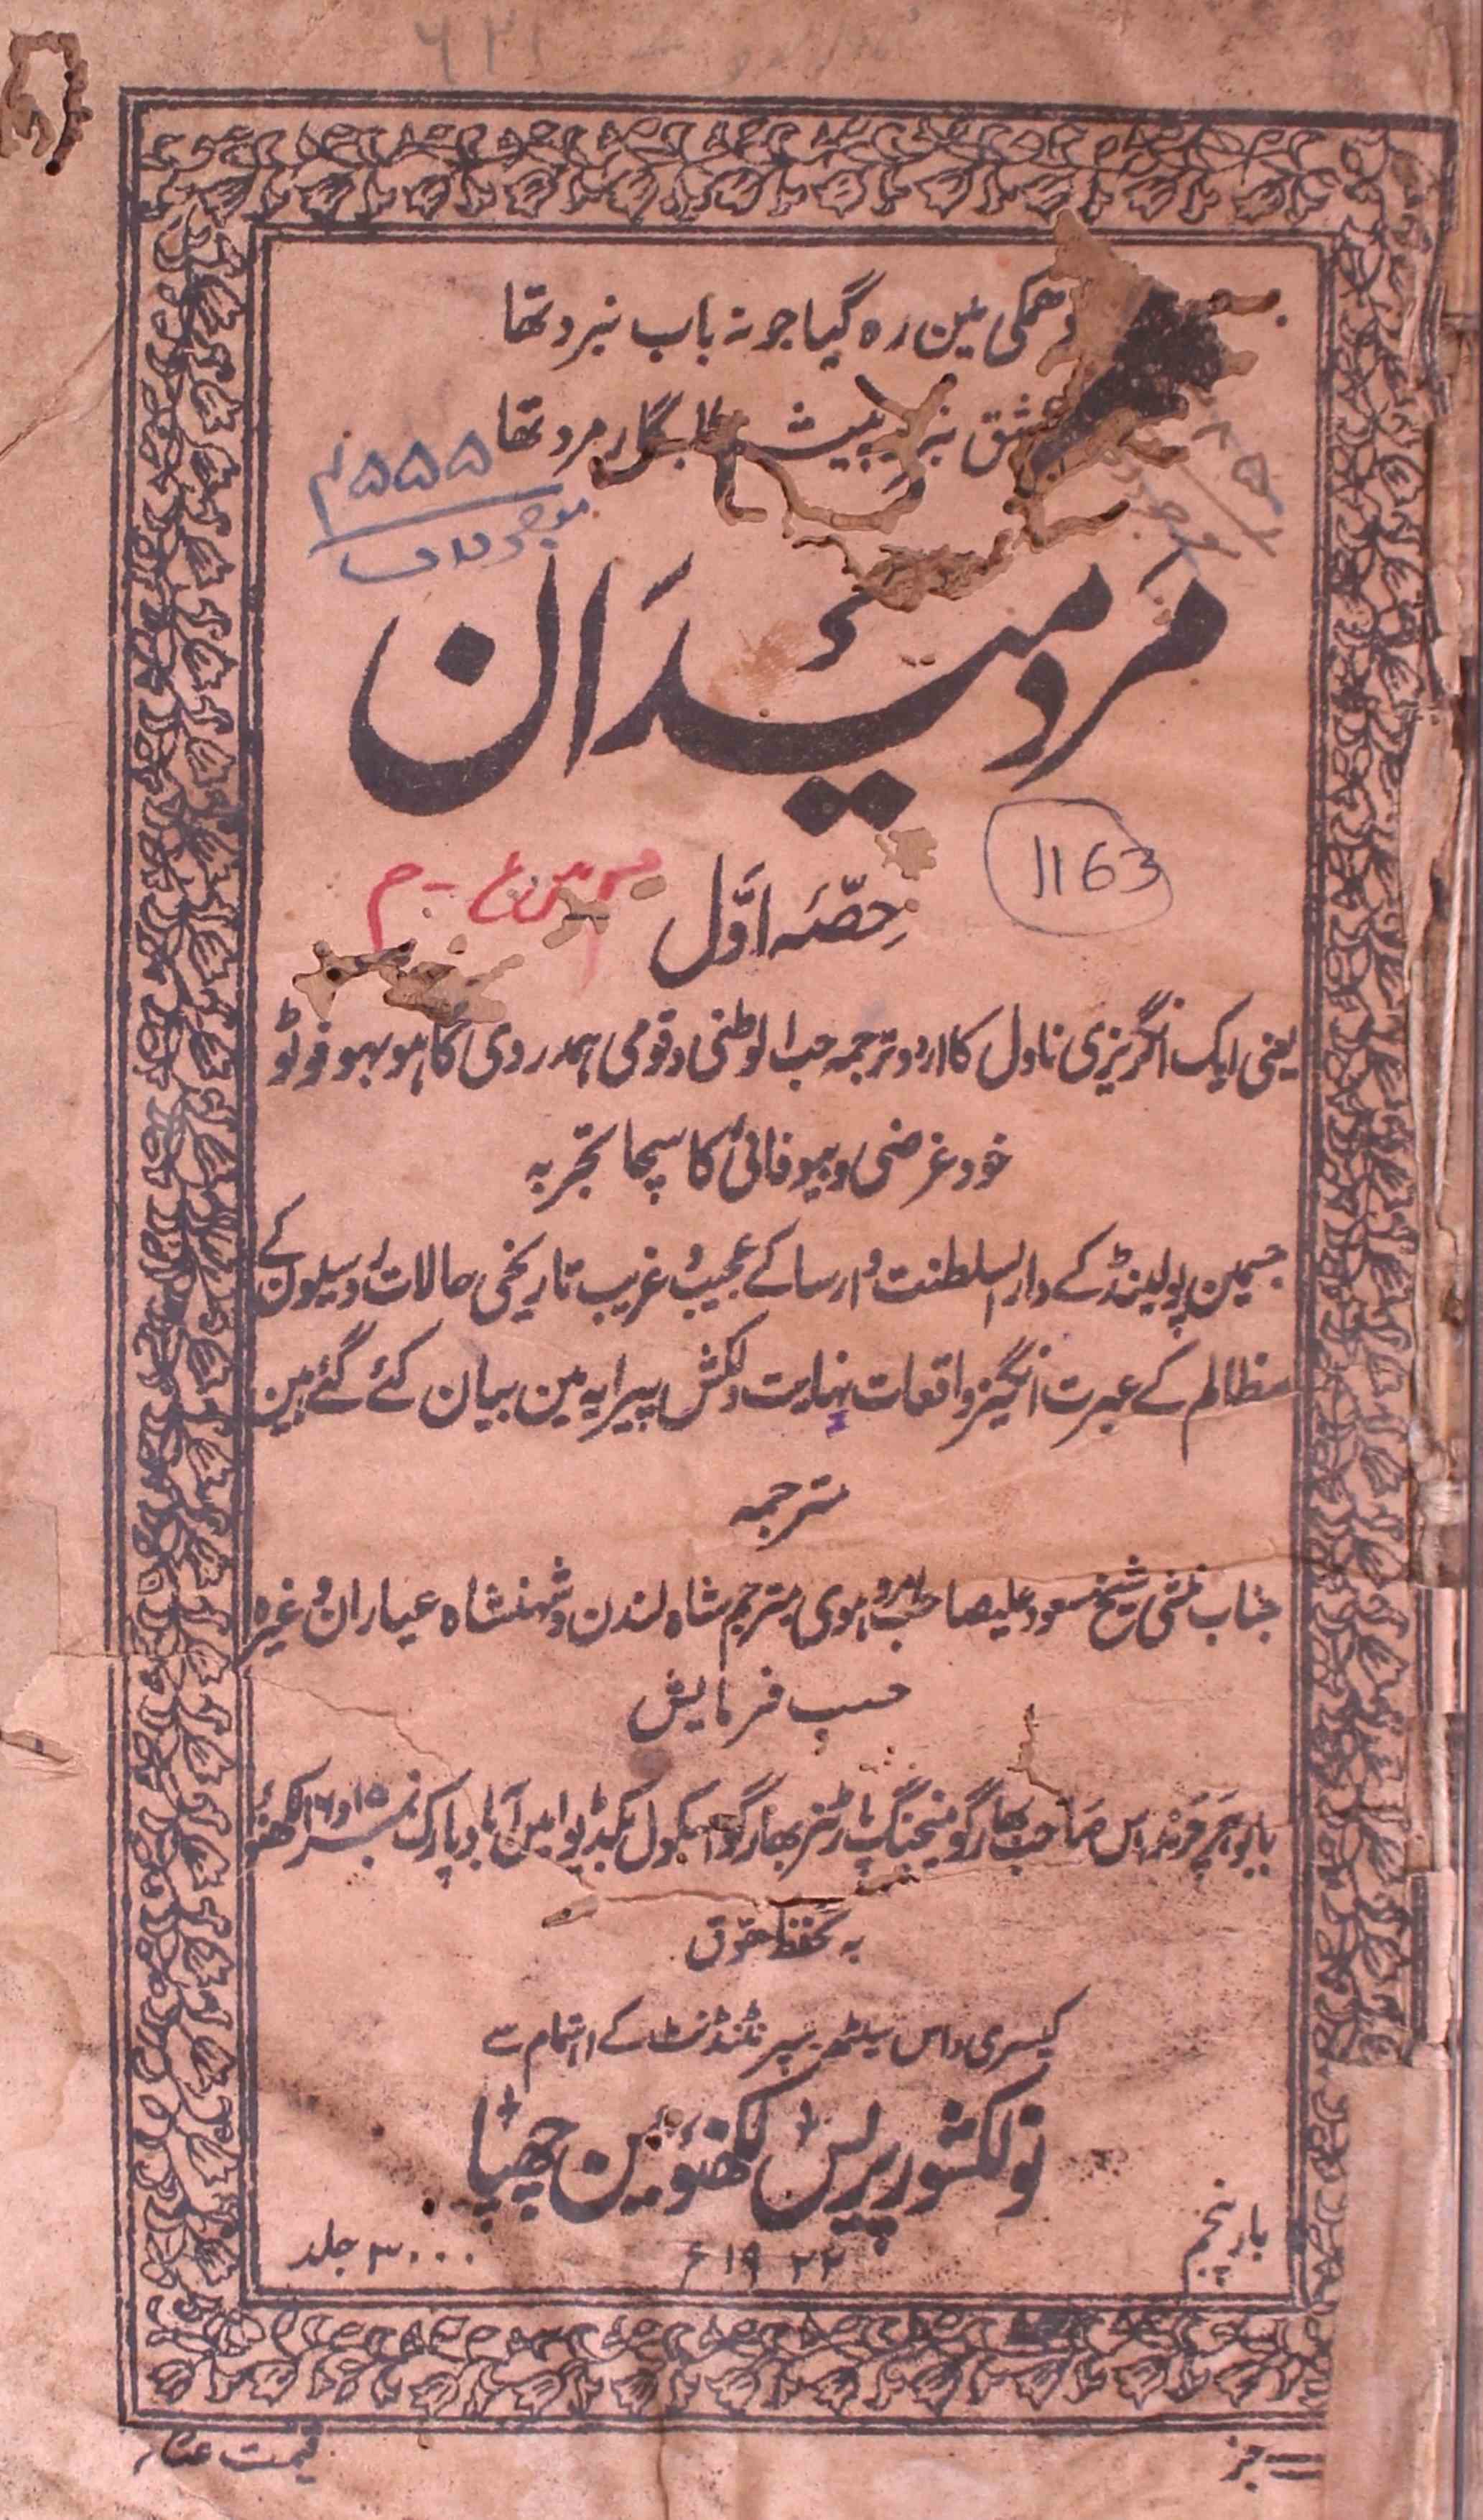 دھمکی مین رہ گیا جو نہ باب نبرد تھا
عشق نبرد پیشہ طلبگار مرد تھا
۴۵۵۵
مرد میدان
1163
حصّہ اوّل
یعنی ایک انگریزی ناول کا اردو ترجمہ حب الوطنی و قومی ہمدردی کا ہو بہو فوٹو
خود غرضی و بیوفائی کا سچا تجربہ
جسمین پولینڈ کے دار السلطنت وارسا کے عجیب و غریب تاریخی حالات روسیون کے
مظالم کے عبرت انگیز واقعات نہایت دلکش پیرایہ مین بیان کئے گئے ہین
مترجمہ
جناب منشی شیخ مسعود علیصاحب امروہوی مترجم شاہ لندن و شہنشاہ عیاران وغیرہ
حسب فرمایش
بابو صاحب بھارگو منیجنگ پارٹنر بھارگو اسکول بکڈپو امین آباد پارک نمبر ۱۵ و ۱۶ لکھنؤ
بہ تحفظ حقوق
کیسری داس سیٹھ سپرنٹنڈنٹ کے اہتمام سے
نولکشور پریس لکھنؤ مین چھپا
بار پنجم
۱۹۲۲ء
۳۰۰۰ جلد
جز
قیمت